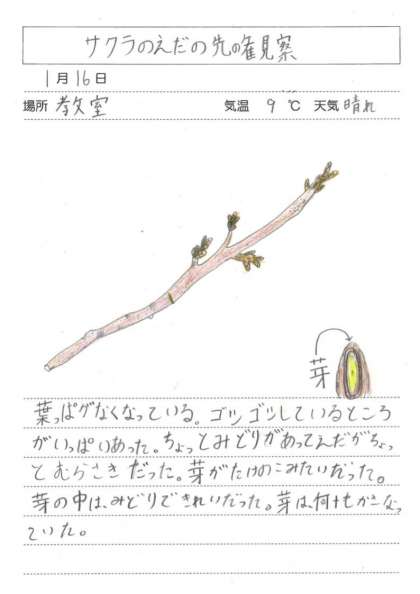 サクラのえだの先の観察
1月16日
場所 教室 気温 9℃ 天気 晴れ
芽
葉っぱがなくなっている。ゴツゴツしているところ
がいっぱいあった。ちょっとみどりがあってえだがちょっ
とむらさきだった。芽がたけのこみたいだった。
芽の中は、みどりできれいだった。芽は、何まいもかさなっ
ていた。